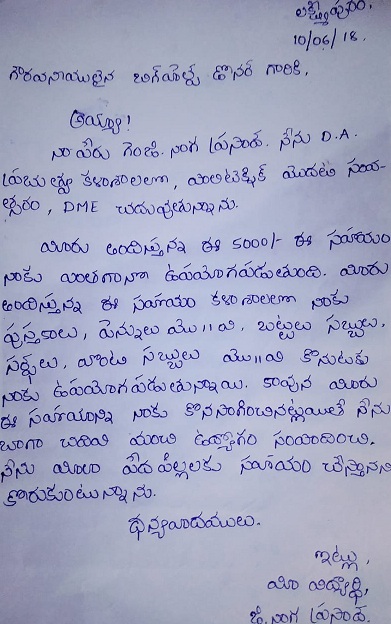 లక్ష్మీపురం,
10/06/18.
గౌరవనీయులైన బిగ్‌హెల్ప్ డోనర్ గారికి,
అయ్యా!
నా పేరు గెంజి. నంగ ప్రసాద్. నేను D.A.
ప్రభుత్వ కళాశాలలో, పాలిటెక్నిక్ మొదటి సంవ
త్సరం, DME చదువుతున్నాను.
మీరు అందిస్తున్న ఈ 5000/- ఈ సహాయం
నాకు ఎంతగానో ఉపయోగపడుతుంది. మీరు
అందిస్తున్న ఈ సహాయం కళాశాలలో నాకు
పుస్తకాలు, పెన్నులు మొ॥వి, బట్టలు సబ్బులు,
సర్ఫ్‌లు, వంటి సబ్బులు మొ॥వి కొనుటకు
నాకు ఉపయోగపడుతున్నాయి. కావున మీరు
ఈ సహాయాన్ని నాకు కొనసాగించినట్లయితే నేను
బాగా చదివి మంచి ఉద్యోగం సంపాదించి.
నేను మీలా పేద పిల్లలకు సహాయం చేస్తానని
కోరుకుంటున్నాను.
ధన్యవాదములు.
ఇట్లు,
మీ విద్యార్థి,
జి. నంగ ప్రసాద్.